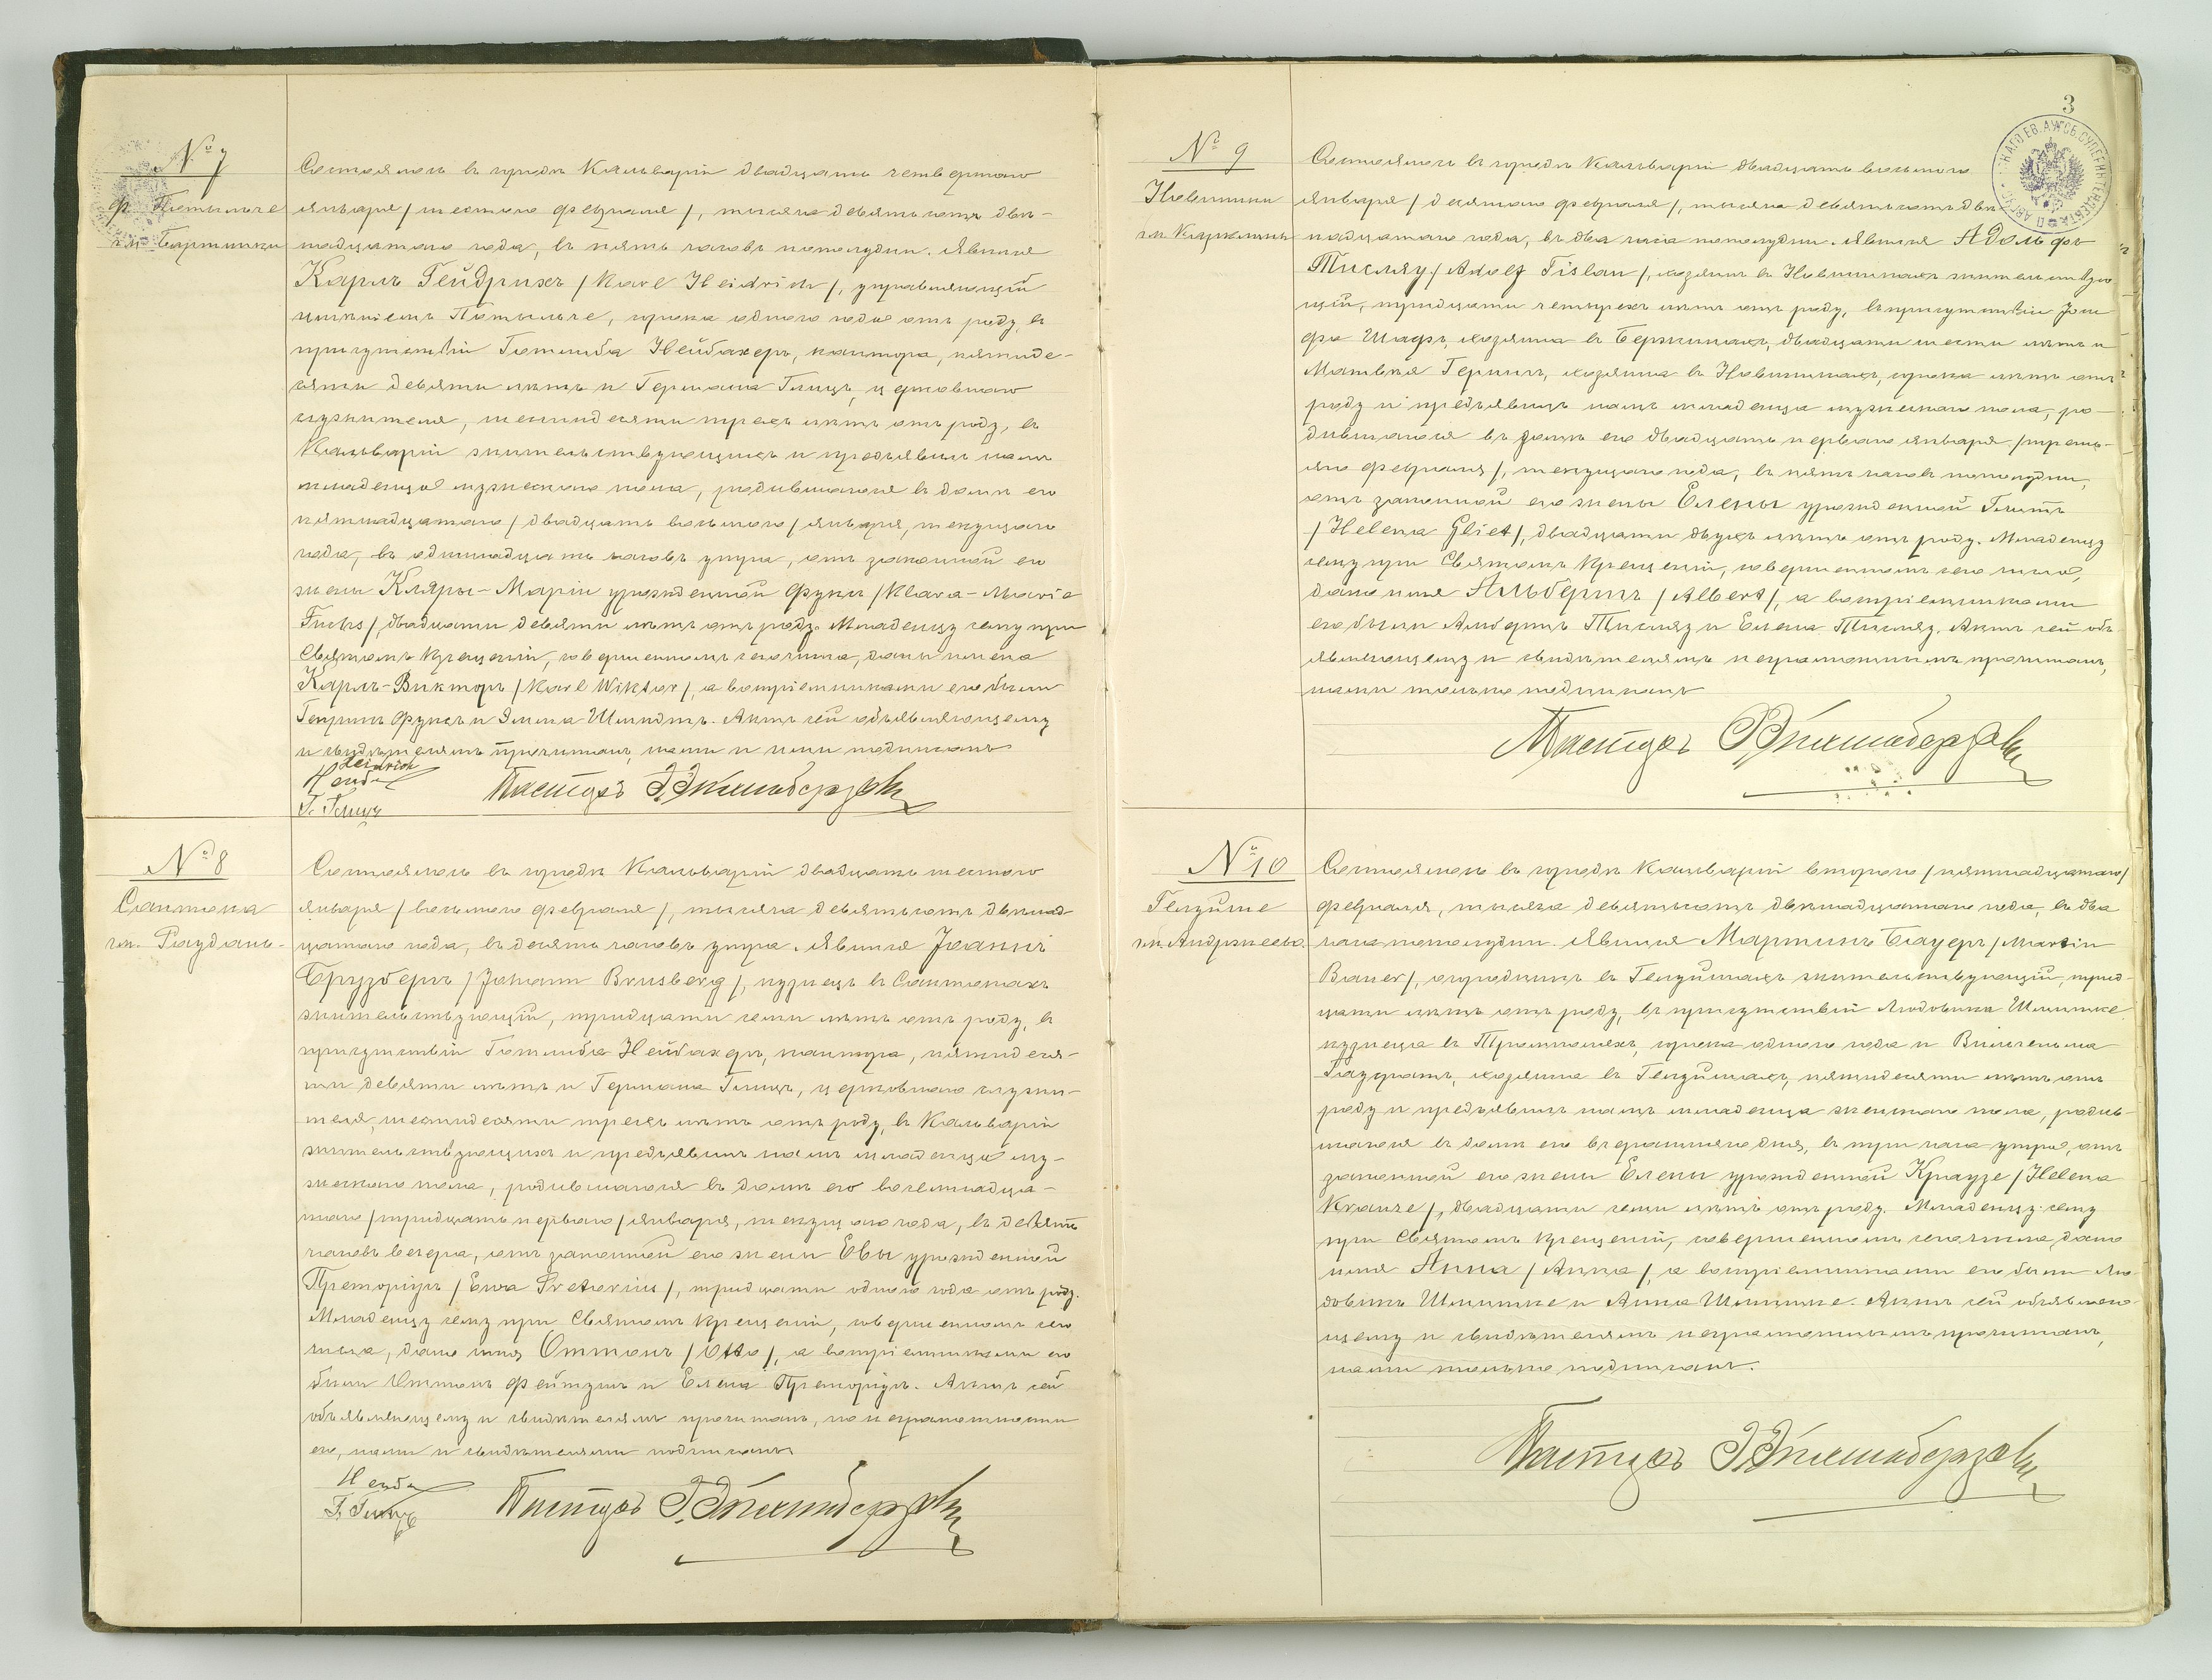 № 7
ф. Потыльче
гм. Бартники
Состоялось въ городѣ Кальваріи двадцать четвертаго
января /шестого февраля/, тысяча девятьсотъ двѣ-
надцатаго года, въ пять часовъ пополудни. Явился
Карлъ Гейдрихъ /Karl Heidrich/, управляющій
имѣніемъ Потыльче, сорока одного года отъ роду, въ
присутствіи Готлиба Нейбахеръ, кантора, пятиде-
сяти девяти лѣтъ и Германа Глицъ, церковнаго
служителя, шестидесяти трехъ лѣтъ отъ роду, въ
Кальваріи жительствующихъ и предъявилъ намъ
младенца мужескаго пола, родившагося въ домѣ его
пятнадцатаго /двадцать восьмого/ января, текущаго
года, въ одиннадцать часовъ утра, отъ законной его
жены Клары-Маріи урожденной Фуксъ /Klara-Maria
Fuchs/, двадцати девяти лѣтъ отъ роду. Младенцу сему при
Святомъ Крещеніи, совершенномъ сего числа, даны имена
Карлъ-Викторъ /Karl Wiktor/, а воспріемниками его были
Генрихъ Фуксъ и Эмма Шмидтъ. Актъ сей объявляющему
и свидѣтелямъ прочитанъ, нами и ими подписанъ
Heidrich
Г. Глицъ
Пасторъ
№ 8
Сантака
гм. Раудань-
Состоялось въ городѣ Кальваріи двадцать шестого
января /восьмого февраля/, тысяча девятьсотъ двѣнад-
цатаго года, въ десять часовъ утра. Явился Іоаннъ
Брузбергъ /Johann Brusberg/, кузнецъ въ Сантакахъ
жительствующій, тридцати семи лѣтъ отъ роду, въ
присутствіи Готлиба Нейбахеръ, кантора, пятидеся-
ти девяти лѣтъ и Германа Глицъ, церковнаго служи-
теля, шестидесяти трехъ лѣтъ отъ роду, въ Кальваріи
жительствующихъ и предъявилъ намъ младенца му-
жескаго пола, родившагося въ домѣ его восемнадца-
таго /тридцать перваго/ января, текущаго года, въ девять
часовъ вечера, отъ законной его жены Евы урожденной
Преторіусъ /Ewa Pretorius/, тридцати одного года отъ роду.
Младенцу сему при Святомъ Крещеніи, совершенномъ сего
числа, дано имя Оттонъ /Otto/, а воспріемниками его
были Оттонъ и Елена Преторіусъ. Актъ сей
объявляющему и свидѣтелямъ прочитанъ, по неграмотности
его, нами и свидѣтелями подписанъ
Г. Глицъ
Пасторъ
3
№ 9
Новинники
гм.
Состоялось въ городѣ Кальваріи двадцать восьмого
января /десятаго февраля/, тысяча девятьсотъ двѣ-
надцатаго года, въ два часа пополудни. Явился Адольфъ
Тисляу /Adolf Tislau/, хозяинъ въ Новинникахъ жительствую-
щій, тридцати четырехъ лѣтъ отъ роду, въ присутствіи Іоси-
фа Шадъ, хозяина въ Бержинахъ, двадцати шести лѣтъ и
Матвѣя Герингъ, хозяина въ Новинникахъ, сорока лѣтъ отъ
роду и предъявилъ намъ младенца мужескаго пола, ро-
дившагося въ домѣ его двадцать перваго января /треть-
яго февраля/, текущаго года, въ пять часовъ пополудни,
отъ законной его жены Елены урожденной Глитъ
/Helena Gliet/, двадцати двухъ лѣтъ отъ роду. Младенцу
сему при Святомъ Крещеніи, совершенномъ сего числа,
дано имя Альбертъ /Albert/, а воспріемниками
его были Альбертъ Тисляу и Елена Тисляу. Актъ сей объ-
являющему и свидѣтелямъ неграмотнымъ прочитанъ,
нами только подписанъ
Пасторъ
№ 10
гм. Андржеево.
Состоялось въ городѣ Кальваріи второго /пятнадцатаго/
февраля, тысяча девятьсотъ двѣнадцатаго года, въ два
часа пополудни. Явился Мартинъ Бауеръ /Martin
Bauer/, огородникъ въ жительствующій, трид-
цати лѣтъ отъ роду, въ присутствіи Людовика Шлишке
кузнеца въ сорока одного года и Вильгельма
хозяина въ пятидесяти лѣтъ отъ
роду и предъявилъ намъ младенца женскаго пола, родив-
шагося въ домѣ его вчерашняго дня, въ три часа утра, отъ
законной его жены Елены урожденной Краузе /Helena
Krauze/, двадцати семи лѣтъ отъ роду. Младенцу сему
при Святомъ Крещеніи, совершенномъ сего числа, дано
имя Анна /Anna/, а воспріемниками его были Лю-
довикъ Шлишке и Анна Шлишке. Актъ сей объявляю-
щему и свидѣтелямъ неграмотнымъ прочитанъ,
нами только подписанъ.
Пасторъ